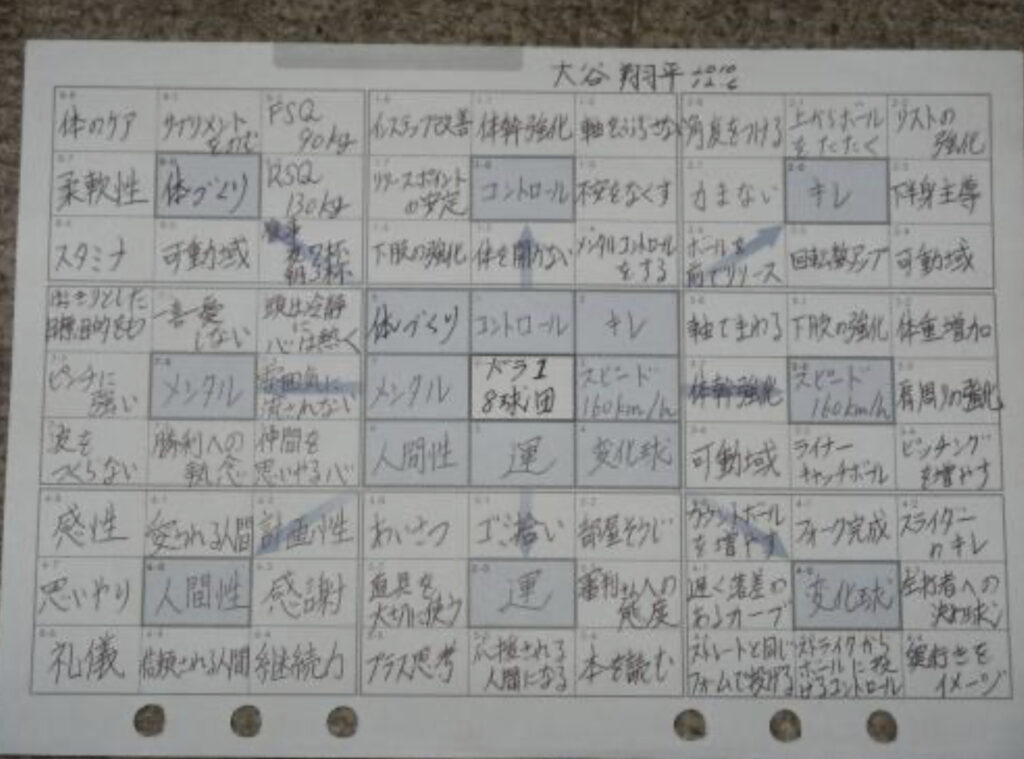 大谷 翔平
体のケア サプリメントをのむ FSQ 90kg インステップ改善 体幹強化 軸をぶらさない 角度をつける 上からボールをたたく リストの強化
柔軟性 体づくり RSQ 130kg リリースポイントの安定 コントロール 不安をなくす 力まない キレ 下半身主導
スタミナ 可動域 食事 夜7杯 朝3杯 下肢の強化 体を開かない メンタルコントロールをする ボールを前でリリース 回転数アップ 可動域
はっきりとした目標、目的をもつ 一喜一憂しない 頭は冷静に 心は熱く 体づくり コントロール キレ 軸でまわる 下肢の強化 体重増加
ピンチに強い メンタル 雰囲気に流されない メンタル ドラ1 8球団 スピード 160km/h 体幹強化 スピード 160km/h 肩周りの強化
波をつくらない 勝利への執念 仲間を思いやる心 人間性 運 変化球 可動域 ライナーキャッチボール ピッチングを増やす
感性 愛される人間 計画性 あいさつ ゴミ拾い 部屋そうじ カウントボールを増やす フォーク完成 スライダーのキレ
思いやり 人間性 感謝 道具を大切に使う 運 審判さんへの態度 遅く落差のあるカーブ 変化球 左打者への決め球
礼儀 信頼される人間 継続力 プラス思考 応援される人間になる 本を読む ストレートと同じフォームで投げる ストライクからボールに投げるコントロール 奥行きをイメージ